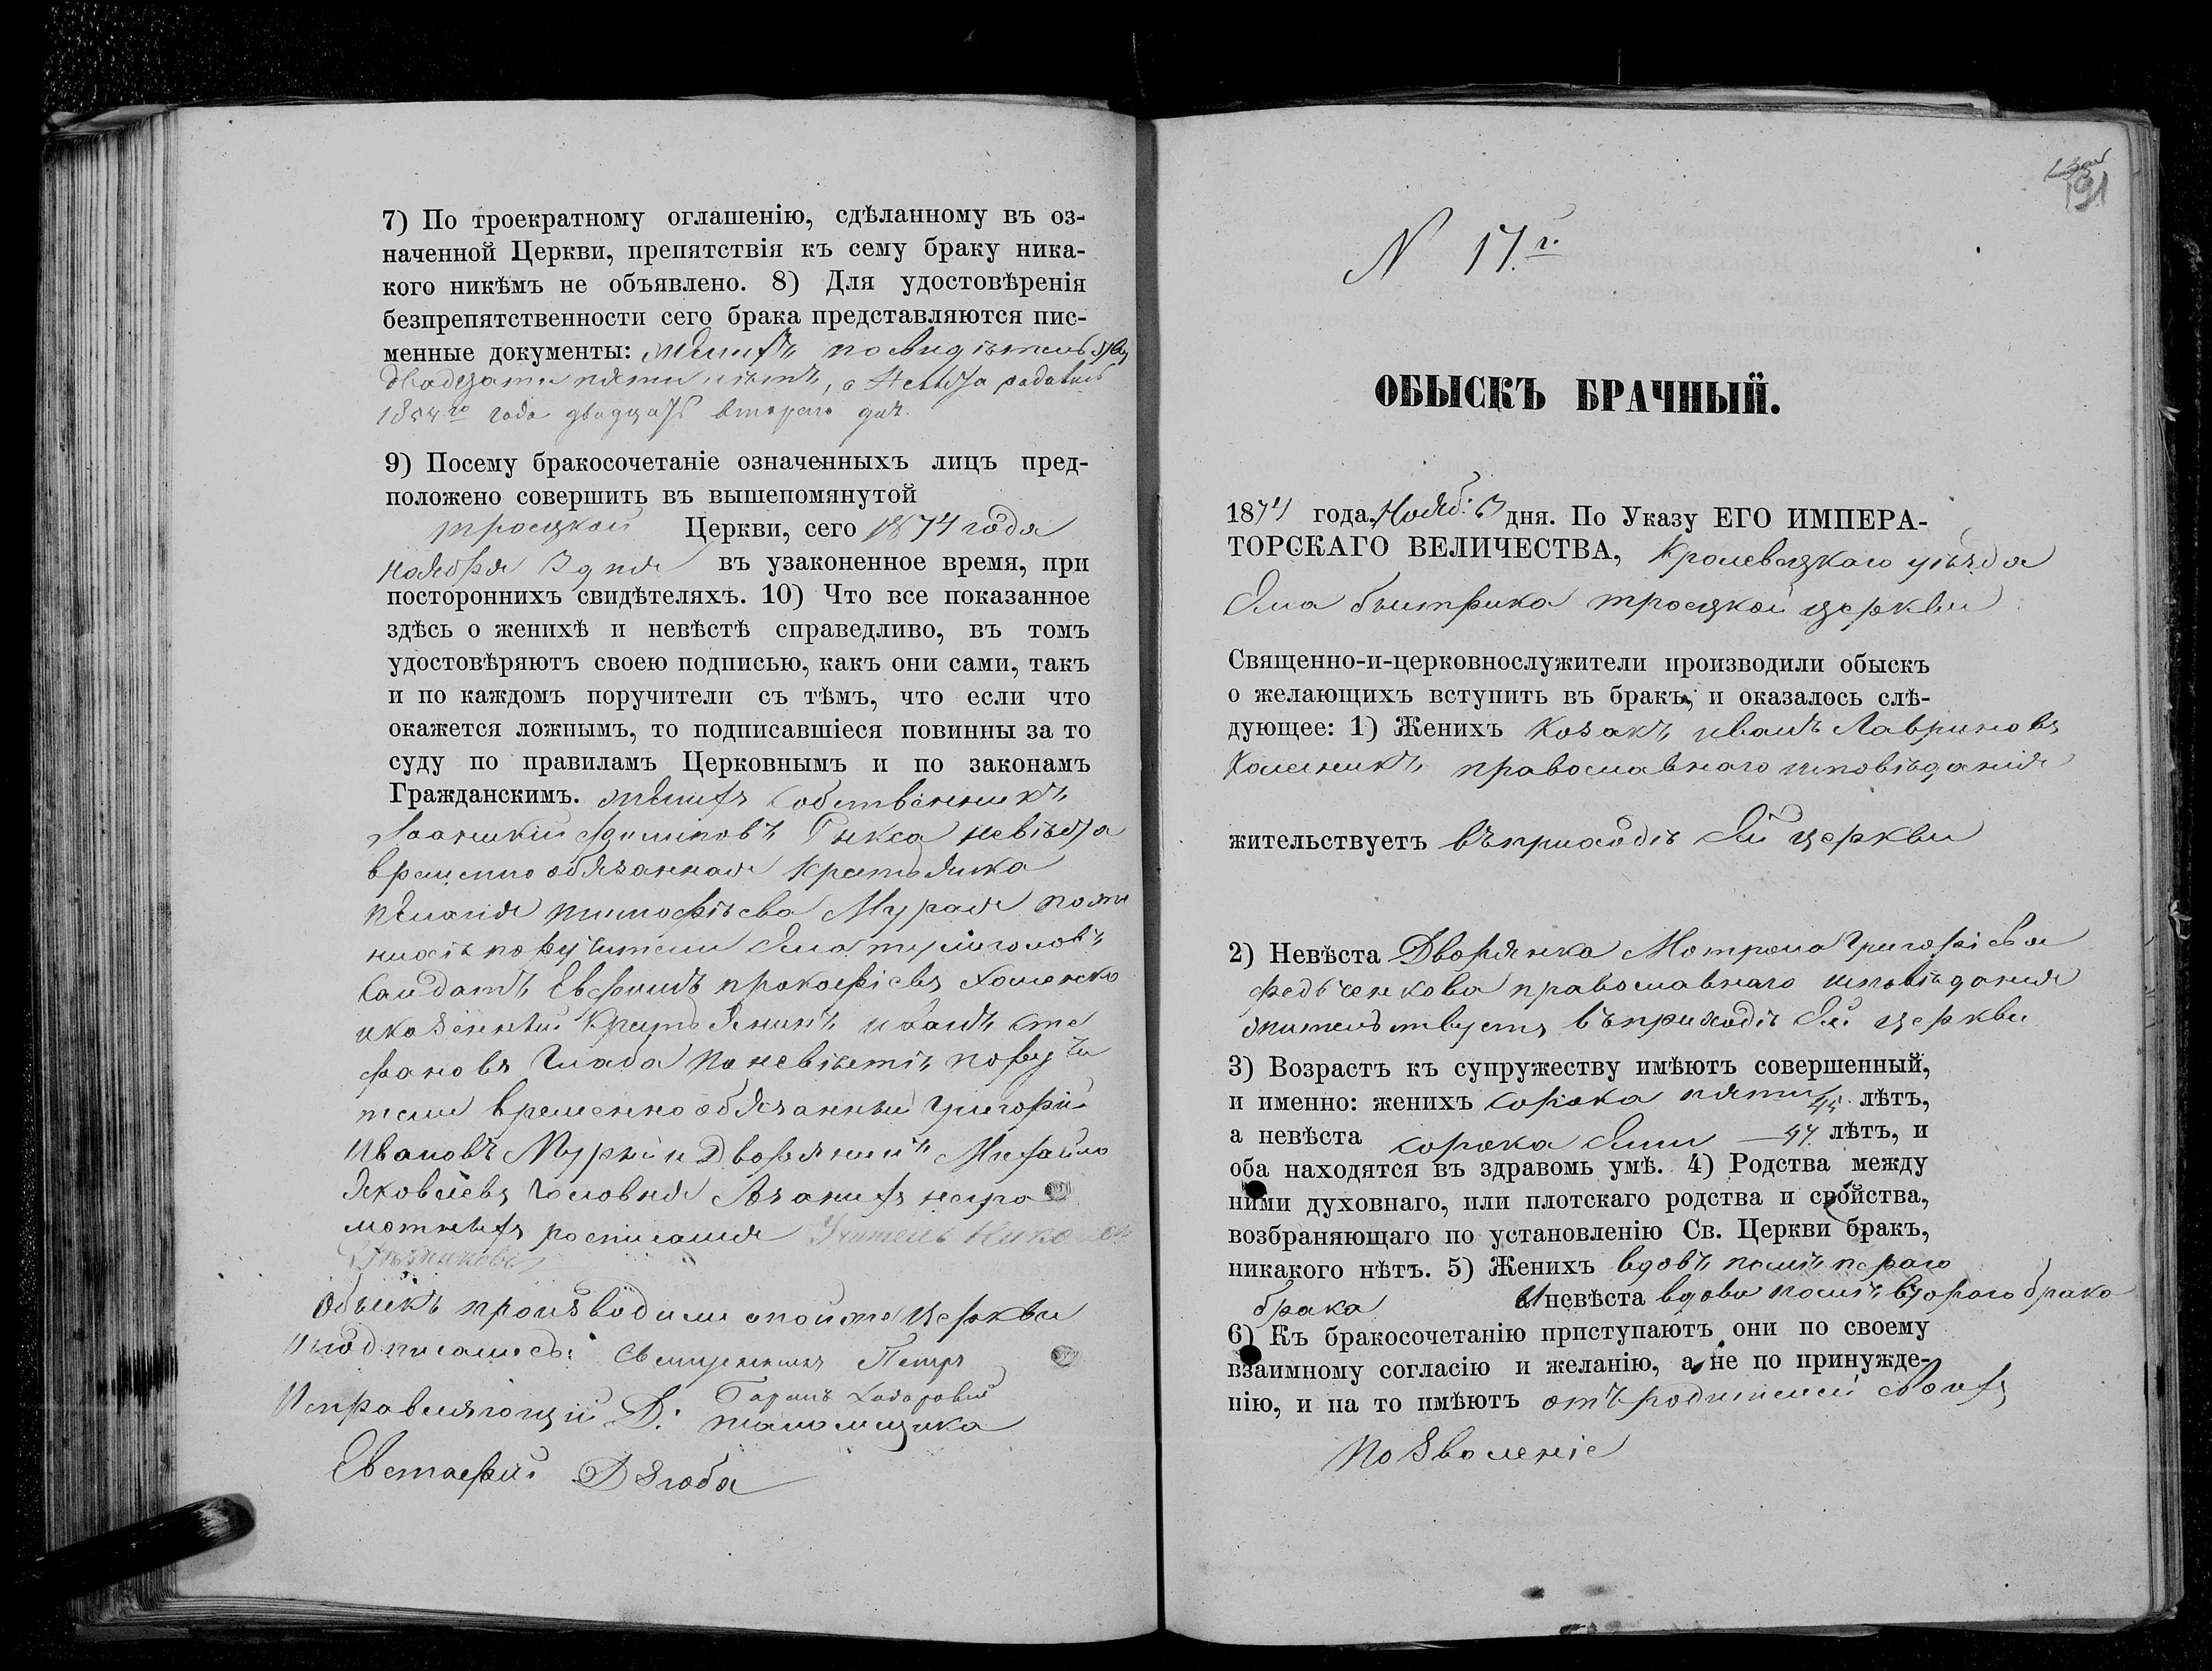 7) По троекратному оглашенію, сдѣланному въ оз-
наченной Церкви, препятствія къ сему браку ника-
кого никѣмъ не объявлено. 8) Для удостовѣренія
безпрепятственности сего брака представляются пис-
менные документы: женихъ по свидѣтельству
двадцати пяти лѣтъ, а Невѣста родилась
1854го года двадцать второго дек.
9) Посему бракосочетаніе означенныхъ лицъ пред-
положено совершить въ вышепомянутой
троецкой Церкви, сего 1874 года
ноября 3 дня въ узаконенное время, при
постороннихъ свидѣтеляхъ. 10) Что все показанное
здѣсь о женихѣ и невѣстѣ справедливо, въ томъ
удостовѣряютъ своею подписью, какъ они сами, такъ
и по каждомъ поручители съ тѣмъ, что если что
окажется ложнымъ, то подписавшіеся повинны за то
суду по правиламъ Церковнымъ и по законамъ
Гражданскимъ. женихъ собственникъ
Филиповъ невѣста
временно обязанная крестьянка
тимофѣева по же
нихѣ поручители
Солдатъ Ефимъ прокофіевъ
и казенный крестьянинъ иванъ сте
фановъ По невѣстѣ поручи
тели временно обязанный григорій
Ивановъ и Дворянинъ Михайло
Яковлевъ Головня За нихъ негра
мотныхъ росписался Учитель Николай
Обыскъ производили тойже церкви
и подписались: Священникъ Петръ
Исправляющій Д: поломщика
Евстафій Дзюба
191
N 17.й
ОБЫСКЪ БРАЧНЫЙ.
1874 года, Нояб: 3 дня. По Указу ЕГО ИМПЕРА-
ТОРСКАГО ВЕЛИЧЕСТВА, Кролевецкаго уѣзда
быстрика троецкой церкви
Священно-и-церковнослужители производили обыскъ
о желающихъ вступить въ бракъ, и оказалось слѣ-
дующее: 1) Женихъ Козакъ иванъ Лавриновъ
Колесникъ православнаго исповѣданія
жительствуетъ въ приходѣ сей церкви
2) Невѣста Дворянка Мотрона Григорієва
федьченкова православнаго исповѣданія
жительствуетъ въ приходѣ сей церкви
3) Возрастъ къ супружеству имѣютъ совершенный,
и именно: женихъ сорока пяти 45. лѣтъ,
а невѣста сорока семи — 47. лѣтъ, и
оба находятся въ здравомь умѣ. 4) Родства между
ними духовнаго, или плотскаго родства и свойства,
возбраняющаго по установленію Св. Церкви бракъ,
никакого нѣтъ. 5) Женихъ вдовъ послѣ перваго
брака а невѣста вдова послѣ второго брака
6) Къ бракосочетанію приступаютъ они по своему
взаимному согласію и желанію, а не по принужде-
нію, и на то имѣютъ отъ родителей своихъ
позволеніе